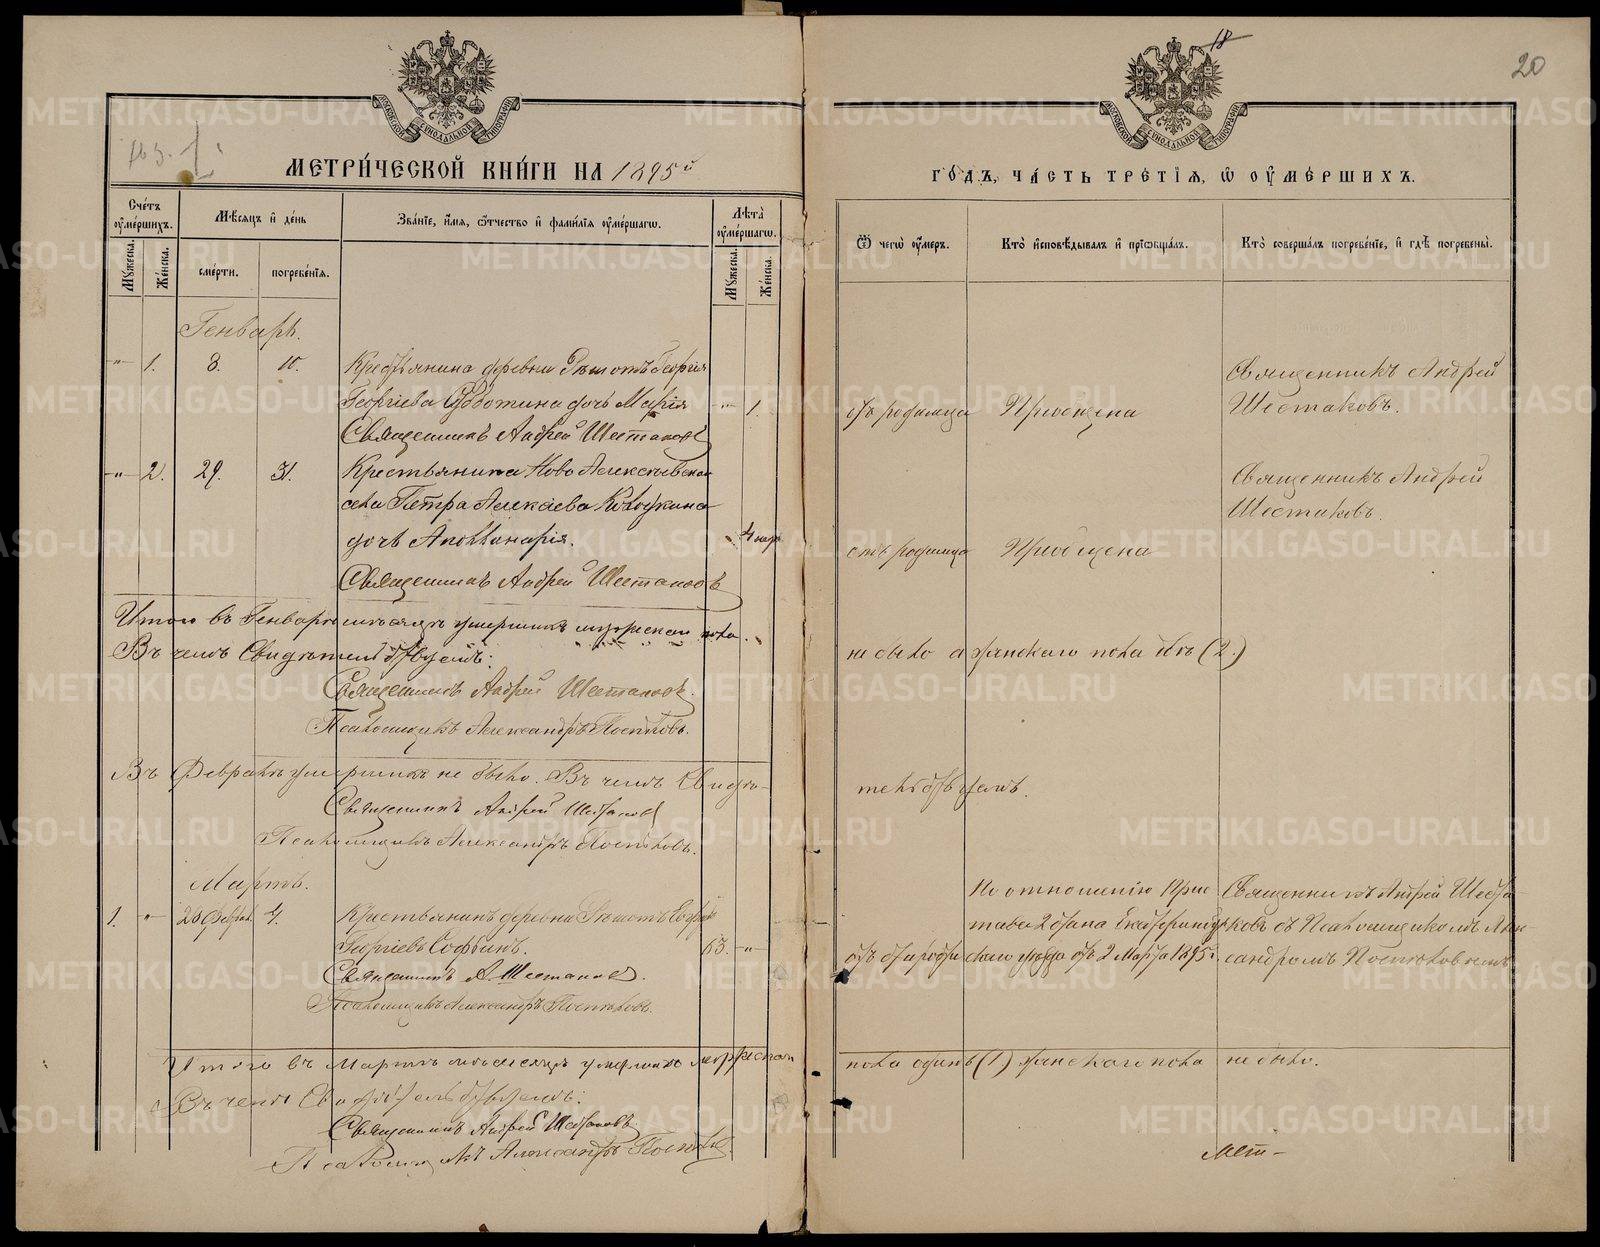 18
20
МОСКОВСКОЙ СѴНОДАЛЬНОЙ ТИПОГРАФІИ
МОСКОВСКОЙ СѴНОДАЛЬНОЙ ТИПОГРАФІИ
МЕТРИ́ЧЕСКОЙ КНИ́ГИ НА 1895й
ГО́ДЪ, ЧА́СТЬ ТРЕ́ТІЯ, Ѡ҆ ОУ҆МЕ́РШИХЪ.
Сче́тъ оу҆ме́ршихъ.
Мꙋжеска.
Же́нска.
Мѣ́сяцъ и҆ де́нь
сме́рти.
погребе́нїѧ.
Зва́нїе, и҆́мѧ, ѻ҆́тчество и҆ фами́лїѧ оу҆ме́ршагѡ.
Лѣ́та оу҆ме́ршагѡ.
Мꙋжеска.
Же́нска.
Ѿ чегѡ̀ оу҆́меръ.
Кто̀ и҆сповѣ́дывалъ и҆ прїѡбща́лъ.
Кто̀ соверша́лъ погребе́нїе, и҆ гдѣ̀ погребены̀.
Генварь.
-"- 1. 8. 10. Крестьянина деревни Рѣшотъ Георгія
Георгіева дочь Марія -"- 1.
Священникъ Андрей Шестаковъ
отъ родимца Пріобщена
Священникъ Андрей
Шестаковъ.
-"- 2. 29. 31. Крестьянина Ново Алексѣевскаго
села Петра Алексѣева
дочь Аполлинарія. 4 нед.
Священникъ Андрей Шестаковъ
отъ родимца Пріобщена
Священникъ Андрей
Шестаковъ.
Итого въ Генварѣ мѣсяцѣ умершихъ мужеска пола
не было а женскаго пола двѣ (2.)
Въ чемъ Свидѣтельствуемъ:
Священникъ Андрей Шестаковъ.
Псаломщикъ Александръ Постниковъ.
Въ Февралѣ умершихъ не было. Въ чемъ Свидѣ-
тельствуемъ.
Священникъ Андрей Шестаковъ
Псаломщикъ Александръ Постниковъ.
Мартъ.
1. -"- 28 Феврал. 4. Крестьянинъ деревни Рѣшотъ
Георгіевъ 63. -"-
Священникъ А. Шестаковъ.
Псаломщикъ Александръ Постниковъ.
отъ старости
По отношенію Прис
тава 2 стана Екатеринбург
скаго уѣзда отъ 2 Марта 1895 г.
Священникъ Андрей Шеста
ковъ съ Псаломщикомъ Алек-
сандромъ Постниковымъ
Итого въ Мартѣ мѣсяцѣ умершихъ мужескаго
пола одинъ (1) женскаго пола не было.
Въ чемъ Свидѣтельствуемъ:
Священникъ Андрей Шестаковъ.
Псаломщикъ Александръ Постниковъ
Мет-
METRIKI.GASO-URAL.RU